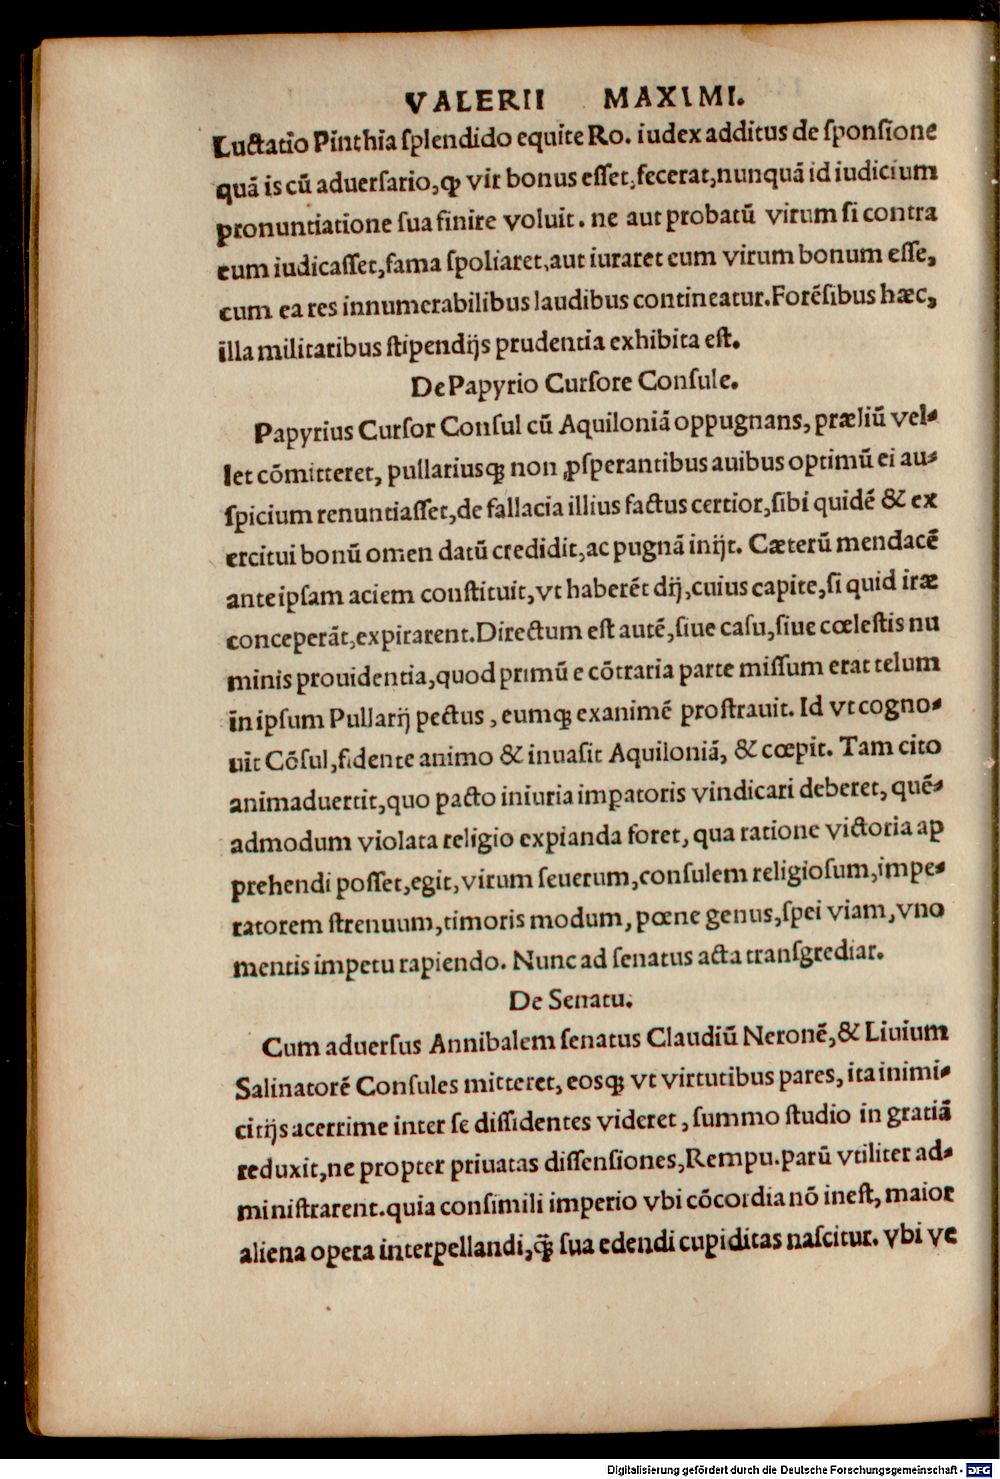 VALERII MAXIMI.
Luctatio Pinthia splendido equite Ro. iudex additus de sponsione
quā is cū aduersario, ꝙ vir bonus esset, fecerat, nunquā id iudicium
pronuntiatione sua finire voluit. ne aut probatū virum si contra
eum iudicasset, fama spoliaret, aut iuraret eum virum bonum esse,
cum ea res innumerabilibus laudibus contineatur. Forēsibus hæc,
illa militaribus stipendijs prudentia exhibita est.
De Papyrio Cursore Consule.
Papyrius Cursor Consul cū Aquiloniā oppugnans, præliū vel-
let cōmitteret, pullariusqꝫ non ꝓsperantibus auibus optimū ei au-
spicium renuntiasset, de fallacia illius factus certior, sibi quidē & ex
ercitui bonū omen datū credidit, ac pugnā inijt. Cæterū mendacē
ante ipsam aciem constituit, vt haberēt dij, cuius capite, si quid iræ
conceperāt, expirarent. Directum est autē, siue casu, siue cœlestis nu
minis prouidentia, quod primū e cōtraria parte missum erat telum
in ipsum Pullarij pectus, eumqꝫ exanimē prostrauit. Id vt cogno-
uit Cōsul, fidente animo & inuasit Aquiloniā, & cœpit. Tam cito
animaduertit, quo pacto iniuria impatoris vindicari deberet, quē-
admodum violata religio expianda foret, qua ratione victoria ap
prehendi posset, egit, virum seuerum, consulem religiosum, impe-
ratorem strenuum, timoris modum, pœne genus, spei viam, vno
mentis impetu rapiendo. Nunc ad senatus acta transgrediar.
De Senatu.
Cum aduersus Annibalem senatus Claudiū Neronē, & Liuium
Salinatorē Consules mitteret, eosqꝫ vt virtutibus pares, ita inimi-
citijs acerrime inter se dissidentes videret, summo studio in gratiā
reduxit, ne propter priuatas dissensiones, Rempu. parū vtiliter ad-
ministrarent. quia consimili imperio vbi cōcordia nō inest, maior
aliena opera interpellandi, ꝗ̄ sua edendi cupiditas nascitur. vbi ve
Digitalisierung gefördert durch die Deutsche Forschungsgemeinschaft - DFG